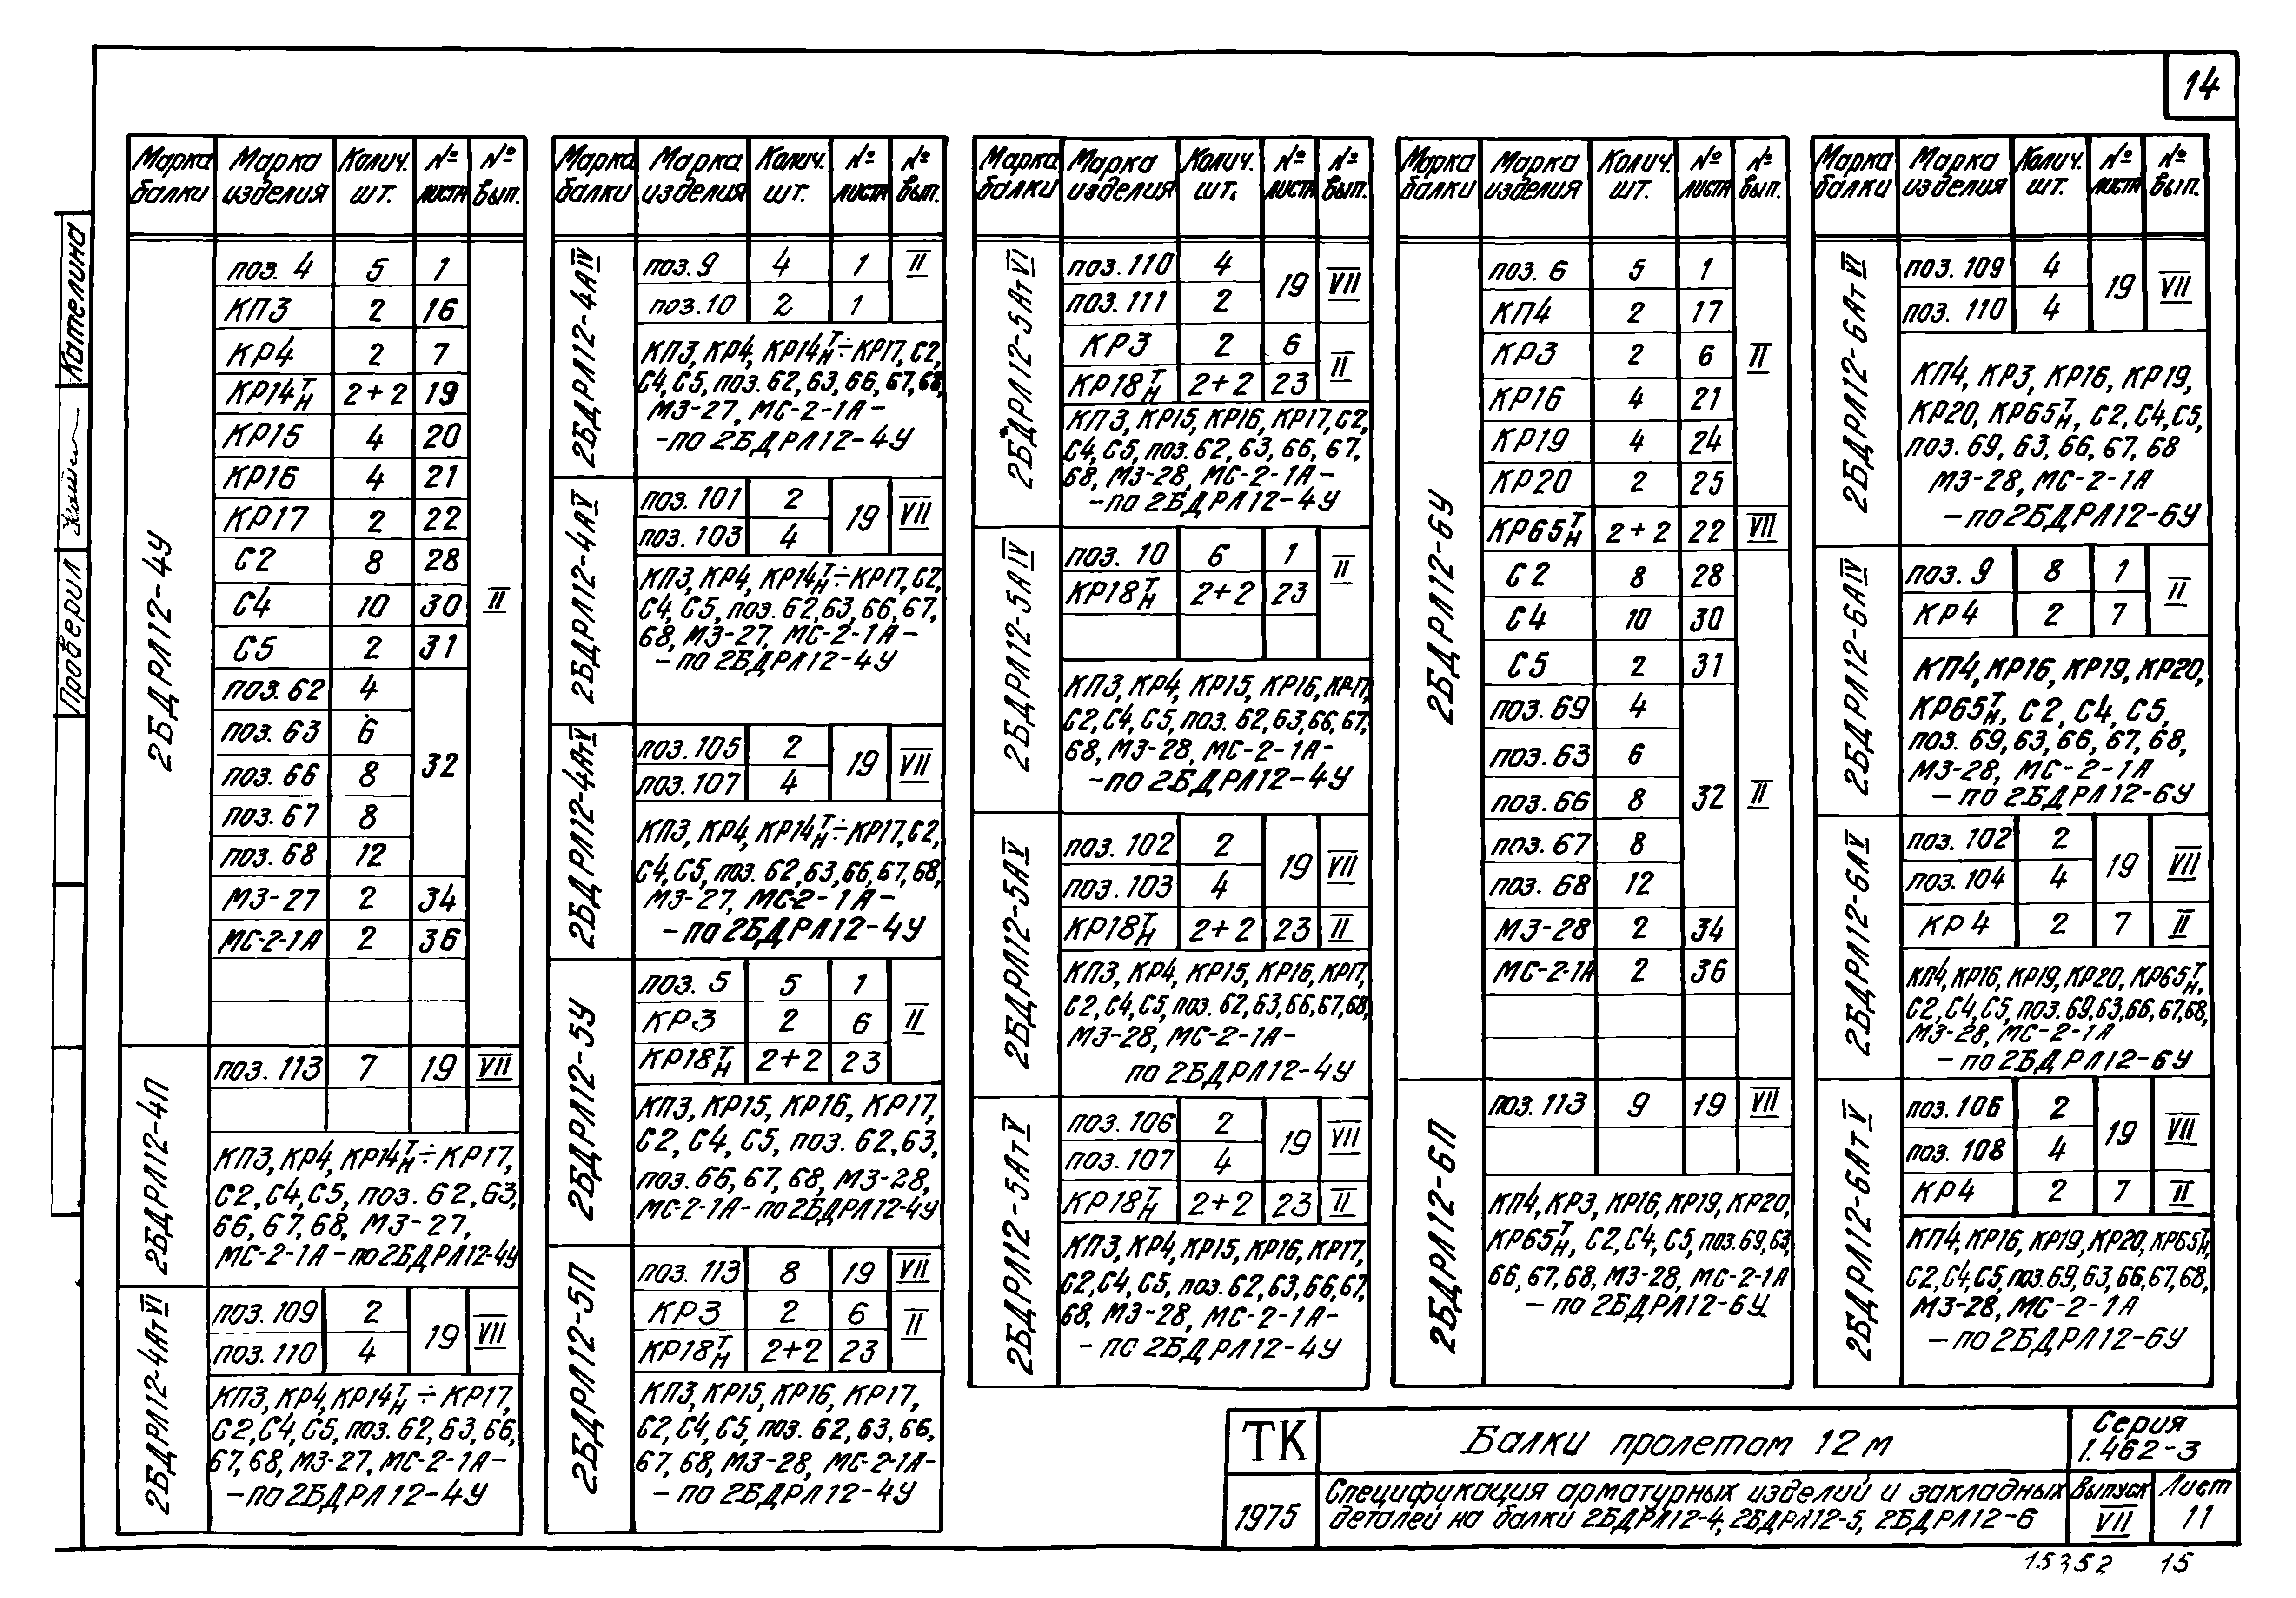 14
Кателина
Проверил
Марка балки Марка изделия Колич. шт. № листа № вып.
2БДРЛ12-4У
поз. 4 5 1
КП3 2 16
КР4 2 7
КР14 Т Н 2+2 19
КР15 4 20
КР16 4 21
КР17 2 22
С2 8 28
С4 10 30 II
С5 2 31
поз. 62 4
поз. 63 6
поз. 66 8 32
поз. 67 8
поз. 68 12
МЗ-27 2 34
МС-2-1А 2 36
2БДРЛ12-4П
поз. 113 7 19 VII
КП3, КР4, КР14 Т Н ÷ КР17,
С2, С4, С5, поз. 62, 63,
66, 67, 68, МЗ-27,
МС-2-1А - по 2БДРЛ12-4У
2БДРЛ12-4Ат VI
поз. 109 2 19 VII
поз. 110 4
КП3, КР4, КР14 Т Н ÷ КР17,
С2, С4, С5, поз. 62, 63, 66,
67, 68, МЗ-27, МС-2-1А-
-по 2БДРЛ12-4У
Марка балки Марка изделия Колич. шт. № листа № вып.
2БДРЛ12-4А IV
поз. 9 4 1 II
поз. 10 2 1
КП3, КР4, КР14 Т Н ÷ КР17, С2,
С4, С5, поз. 62, 63, 66, 67, 68,
МЗ-27, МС-2-1А-
-по 2БДРЛ12-4У
2БДРЛ12-4А V
поз. 101 2 19 VII
поз. 103 4
КП3, КР4, КР14 Т Н ÷ КР17, С2,
С4, С5, поз. 62, 63, 66, 67,
68, МЗ-27, МС-2-1А-
-по 2БДРЛ12-4У
2БДРЛ12-4Ат V
поз. 105 2 19 VII
поз. 107 4
КП3, КР4, КР14 Т Н ÷ КР17, С2,
С4, С5, поз. 62, 63, 66, 67, 68,
МЗ-27, МС-2-1А-
-по 2БДРЛ12-4У
2БДРЛ12-5У
поз. 5 5 1
КР3 2 6 II
КР18 Т Н 2+2 23
КП3, КР15, КР16, КР17,
С2, С4, С5, поз. 62, 63,
поз. 66, 67, 68, МЗ-28,
МС-2-1А - по 2БДРЛ12-4У
2БДРЛ12-5П
поз. 113 8 19 VII
КР3 2 6 II
КР18 Т Н 2+2 23
КП3, КР15, КР16, КР17,
С2, С4, С5, поз. 62, 63, 66,
67, 68, МЗ-28, МС-2-1А-
-по 2БДРЛ12-4У
Марка балки Марка изделия Колич. шт. № листа № вып.
2БДРЛ12-5Ат VI
поз. 110 4 19 VII
поз. 111 2
КР3 2 6 II
КР18 Т Н 2+2 23
КП3, КР15, КР16, КР17, С2,
С4, С5, поз. 62, 63, 66, 67,
68, МЗ-28, МС-2-1А-
-по 2БДРЛ12-4У
2БДРЛ12-5А IV
поз. 10 6 1 II
КР18 Т Н 2+2 23
КП3, КР4, КР15, КР16, КР17,
С2, С4, С5, поз. 62, 63, 66, 67,
68, МЗ-28, МС-2-1А-
-по 2БДРЛ12-4У
2БДРЛ12-5А V
поз. 102 2 19 VII
поз. 103 4
КР18 Т Н 2+2 23 II
КП3, КР4, КР15, КР16, КР17,
С2, С4, С5, поз. 62, 63, 66, 67, 68,
МЗ-28, МС-2-1А-
по 2БДРЛ12-4У
2БДРЛ12-5Ат V
поз. 106 2 19 VII
поз. 107 4
КР18 Т Н 2+2 23 II
КП3, КР4, КР15, КР16, КР17,
С2, С4, С5, поз. 62, 63, 66, 67,
68, МЗ-28, МС-2-1А-
-по 2БДРЛ12-4У
Марка балки Марка изделия Колич. шт. № листа № вып.
2БДРЛ12-6У
поз. 6 5 1
КП4 2 17
КР3 2 6 II
КР16 4 21
КР19 4 24
КР20 2 25
КР65 Т Н 2+2 22 VII
С2 8 28
С4 10 30
С5 2 31
поз. 69 4
поз. 63 6
поз. 66 8 32 II
поз. 67 8
поз. 68 12
МЗ-28 2 34
МС-2-1А 2 36
2БДРЛ12-6П
поз. 113 9 19 VII
КП4, КР3, КР16, КР19, КР20,
КР65 Т Н, С2, С4, С5, поз. 69, 63,
66, 67, 68, МЗ-28, МС-2-1А
-по 2БДРЛ12-6У
Марка балки Марка изделия Колич. шт. № листа № вып.
2БДРЛ12-6Ат VI
поз. 109 4 19 VII
поз. 110 4
КП4, КР3, КР16, КР19,
КР20, КР65 Т Н, С2, С4, С5,
поз. 69, 63, 66, 67, 68
МЗ-28, МС-2-1А
-по 2БДРЛ12-6У
2БДРЛ12-6А IV
поз. 9 8 1 II
КР4 2 7
КП4, КР16, КР19, КР20,
КР65 Т Н, С2, С4, С5,
поз. 69, 63, 66, 67, 68,
МЗ-28, МС-2-1А
-по 2БДРЛ12-6У
2БДРЛ12-6А V
поз. 102 2 19 VII
поз. 104 4
КР4 2 7 II
КП4, КР16, КР19, КР20, КР65 Т Н,
С2, С4, С5, поз. 69, 63, 66, 67, 68,
МЗ-28, МС-2-1А
-по 2БДРЛ12-6У
2БДРЛ12-6Ат V
поз. 106 2 19 VII
поз. 108 4
КР4 2 7 II
КП4, КР16, КР19, КР20, КР65 Т Н,
С2, С4, С5, поз. 69, 63, 66, 67, 68,
МЗ-28, МС-2-1А
-по 2БДРЛ12-6У
ТК Балки пролетом 12 м Серия 1.462-3
1975 Спецификация арматурных изделий и закладных
деталей на балки 2БДРЛ12-4, 2БДРЛ12-5, 2БДРЛ12-6
Выпуск VII Лист 11
15352 15